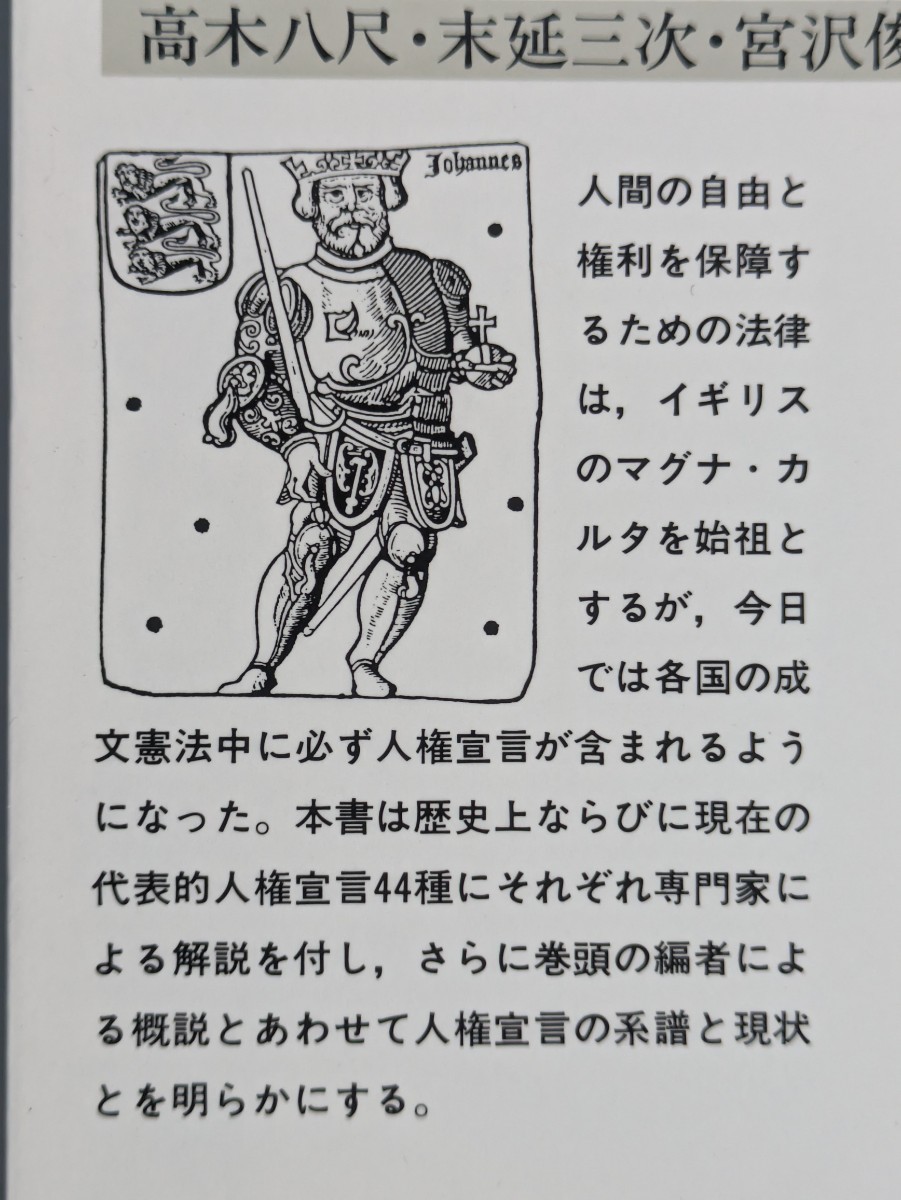 高木八尺・末延三次・宮沢俊
Johannes
人間の自由と
権利を保障す
るための法律
は，イギリス
のマグナ・カ
ルタを始祖と
するが，今日
では各国の成
文憲法中に必ず人権宣言が含まれるよう
になった。本書は歴史上ならびに現在の
代表的人権宣言44種にそれぞれ専門家に
よる解説を付し，さらに巻頭の編者によ
る概説とあわせて人権宣言の系譜と現状
とを明らかにする。